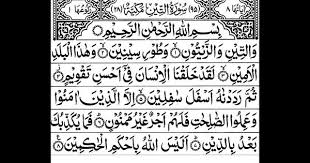 اٰیَاتُهَا ٨ (٩٥) سُوْرَةُ التِّيْنِ مَكِّيَّةٌ (٢٨) رُكُوْعُهَا ١
بِسْمِ اللّٰهِ الرَّحْمٰنِ الرَّحِيْمِ
وَالتِّيْنِ وَالزَّيْتُوْنِ ۙ وَطُوْرِ سِيْنِيْنَ ۙ وَهٰذَا الْبَلَدِ
الْاَمِيْنِ ۙ لَقَدْ خَلَقْنَا الْاِنْسَانَ فِيْٓ اَحْسَنِ تَقْوِيْمٍ ۫
ثُمَّ رَدَدْنٰهُ اَسْفَلَ سٰفِلِيْنَ ۙ اِلَّا الَّذِيْنَ اٰمَنُوْا
وَعَمِلُوا الصّٰلِحٰتِ فَلَهُمْ اَجْرٌ غَيْرُ مَمْنُوْنٍ ؕ فَمَا يُكَذِّبُكَ
بَعْدُ بِالدِّيْنِ ؕ اَلَيْسَ اللّٰهُ بِاَحْكَمِ الْحٰكِمِيْنَ